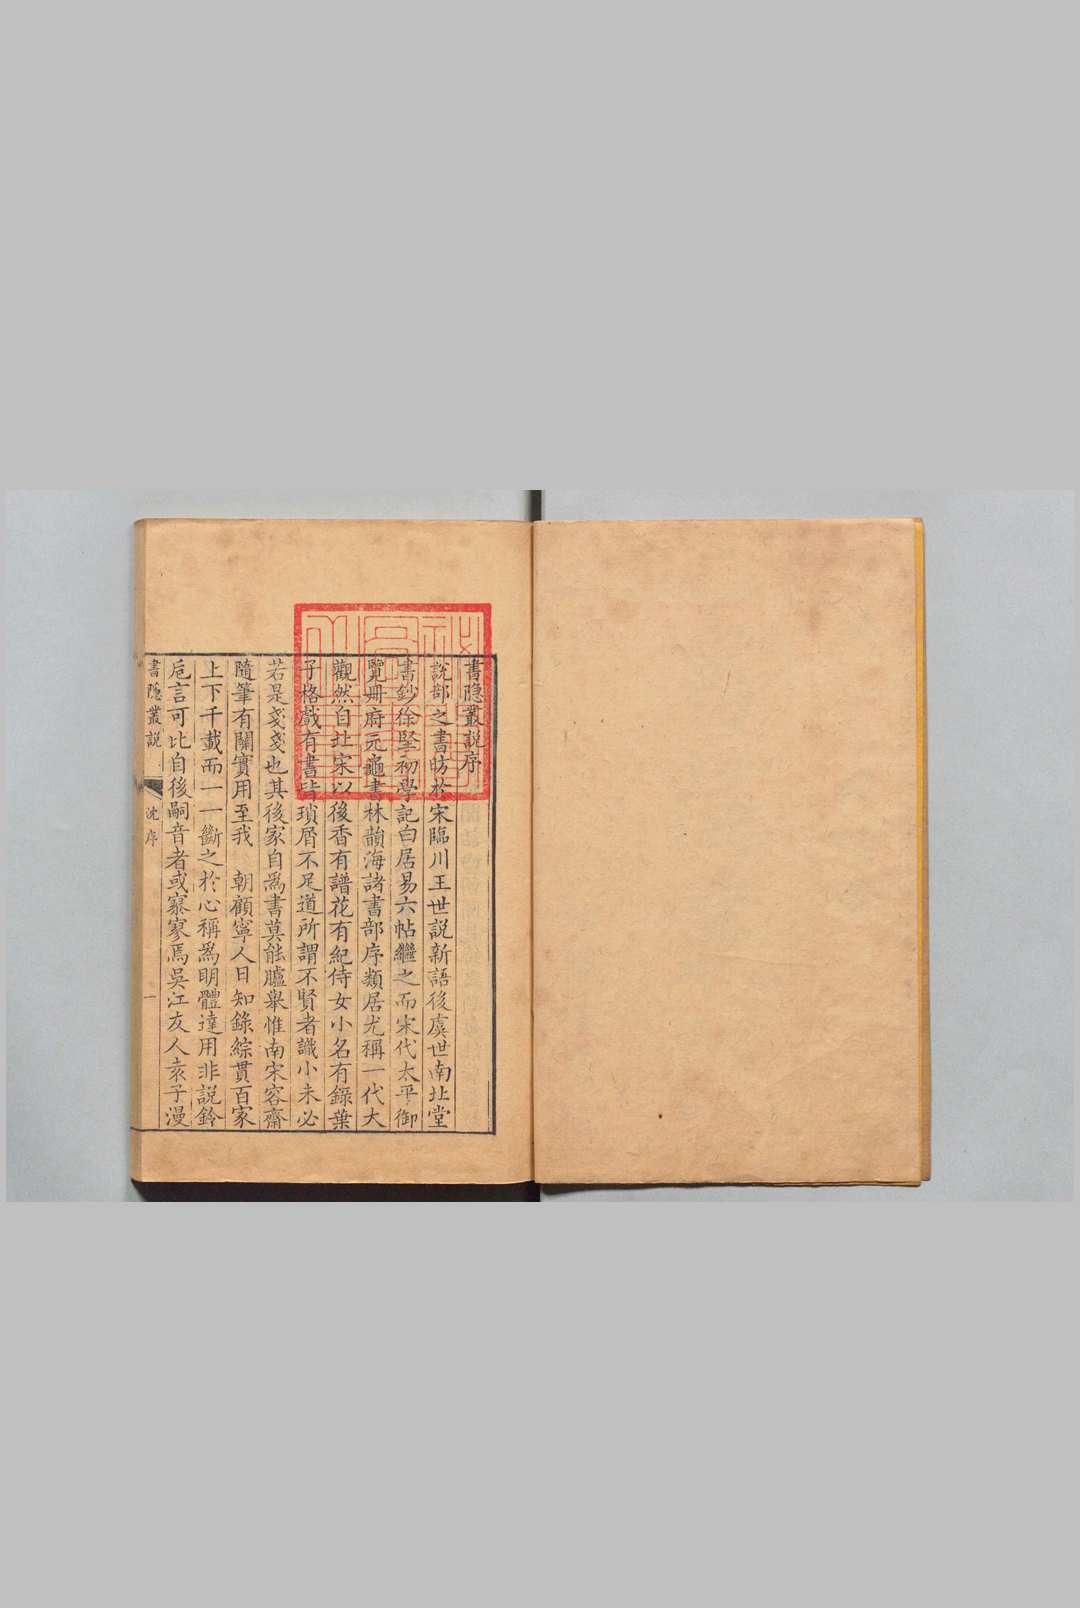 書隱叢說序
說部之書昉於宋臨川王世説新語後虞世南北堂
書鈔徐堅初學記白居易六帖繼之而宋代太平御
覽冊府元龜書林韻海諸書部序類居尤稱一代大
觀然自北宋以後香有譜花有紀侍女小名有錄葉
子格戲有書皆瑣屑不足道所謂不賢者識小未必
若是戔戔也其後家自為書莫能臚舉惟南宋容齋
隨筆有關實用至我　朝顧寧人日知錄綜貫百家
上下千載而一一斷之於心稱為明體達用非説鈴
巵言可比自後嗣音者或寡家焉吳江友人袁子漫
書隱叢說
沈序
一